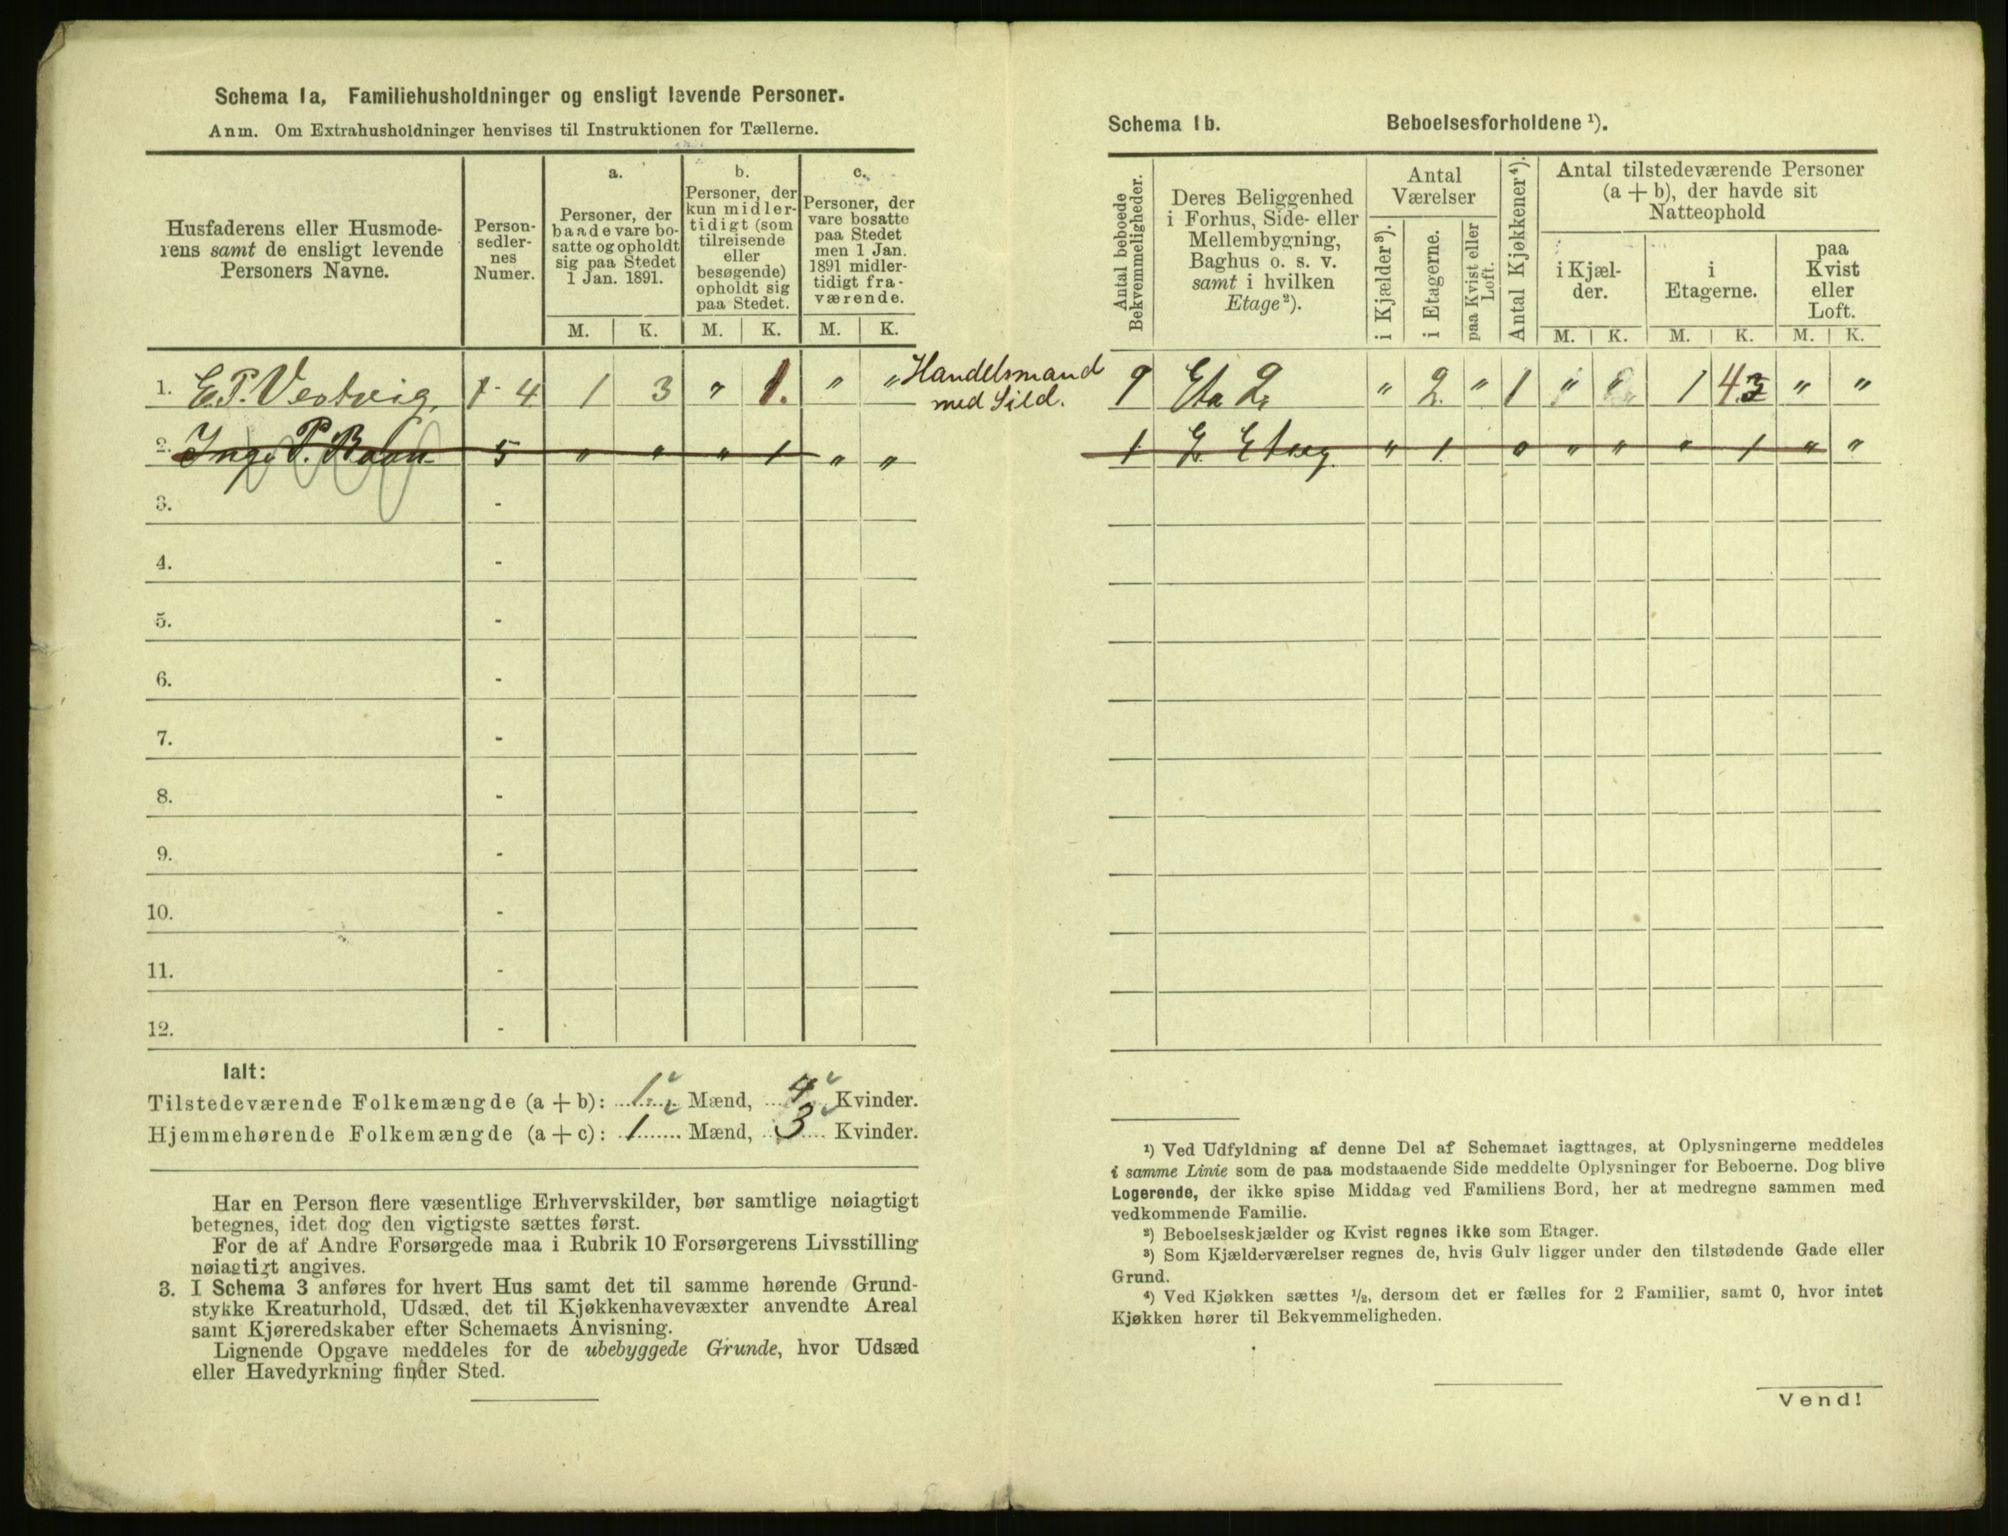 Schema 1a, Familiehusholdninger og ensligt levende Personer.
Anm. Om Extrahusholdninger henvises til Instruktionen for Tællerne.
Husfaderens eller Husmode-
rens samt de ensligt levende
Personers Navne.
Person-
sedler-
nes
Numer.
a.
Personer, der
baade vare bo-
satte og opholdt
sig paa Stedet
1 Jan. 1891.
b.
Personer, der
kun midler-
tidigt (som
tilreisende
eller
besøgende)
opholdt sig
paa Stedet.
c.
Personer, der
vare bosatte
paa Stedet
men 1 Jan.
1891 midler-
tidigt fra-
værende.
M. K. M. K. M. K.
1. E. P. Vestvig 1 - 4 1 3 " 1. " " Handelsmand
med Sild.
2. P. 5 " " " 1 " "
3. -
4. -
5. -
6. -
7. -
8. -
9. -
10. -
11. -
12. -
Ialt:
Tilstedeværende Folkemængde (a + b): 1 Mænd, 4 Kvinder.
Hjemmehørende Folkemængde (a + c): 1 Mænd, 3 Kvinder.
Har en Person flere væsentlige Erhvervskilder, bør samtlige nøiagtigt
betegnes, idet dog den vigtigste sættes først.
For de af Andre Forsørgede maa i Rubrik 10 Forsørgerens Livsstilling
nøiagtigt angives.
3. I Schema 3 anføres for hvert Hus samt det til samme hørende Grund-
stykke Kreaturhold, Udsæd, det til Kjøkkenhavevæxter anvendte Areal
samt Kjøreredskaber efter Schemaets Anvisning.
Lignende Opgave meddeles for de ubebyggede Grunde, hvor Udsæd
eller Havedyrkning finder Sted.
Schema 1b. Beboelsesforholdene ¹).
Antal beboede
Bekvemmeligheder.
Deres Beliggenhed
i Forhus, Side- eller
Mellembygning,
Baghus o. s. v.
samt i hvilken
Etage ²).
Antal
Værelser
i Kjælder ³).
i Etagerne.
paa Kvist eller
Loft.
Antal Kjøkkener ⁴).
Antal tilstedeværende Personer
(a + b), der havde sit
Natteophold
i Kjæl-
der.
i
Etagerne.
paa
Kvist
eller
Loft.
M. K. M. K. M. K.
1 Eta 2 " 2 " 1 " 1 4 3 " "
1 2 Etag " 1 0 " " " 1 " "
¹) Ved Udfyldning af denne Del af Schemaet iagttages, at Oplysningerne meddeles
i samme Linie som de paa modstaaende Side meddelte Oplysninger for Beboerne. Dog blive
Logerende, der ikke spise Middag ved Familiens Bord, her at medregne sammen med
vedkommende Familie.
²) Beboelseskjælder og Kvist regnes ikke som Etager.
³) Som Kjælderværelser regnes de, hvis Gulv ligger under den tilstødende Gade eller
Grund.
⁴) Ved Kjøkken sættes ½, dersom det er fælles for 2 Familier, samt 0, hvor intet
Kjøkken hører til Bekvemmeligheden.
Vend!